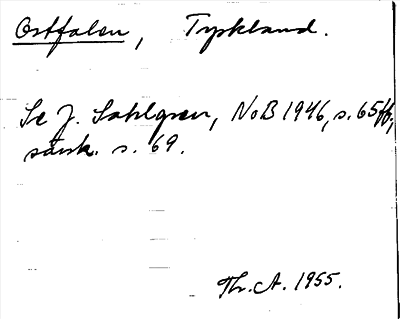 Ostfalen, Tyskland.
Se J. Sahlgren, NoB 1946, s. 65ff,
särsk. s. 69.
Th. A. 1955.